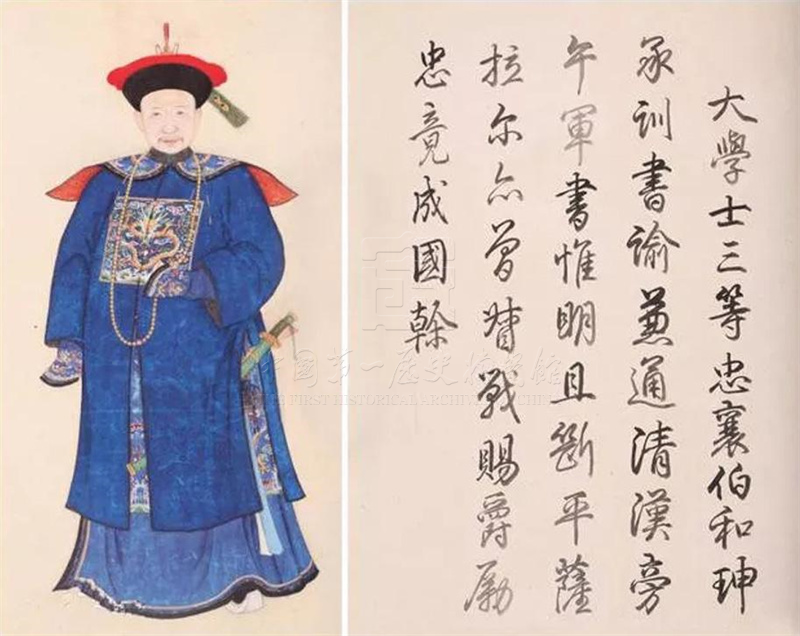 大學士三等忠襄伯和珅
承訓書諭兼通清漢旁
午軍書惟明且斷平薩
拉尔亦曾督戰賜爵勵
忠竟成國幹
中國第一歷史檔案館
FIRST HISTORICAL ARCHIVES